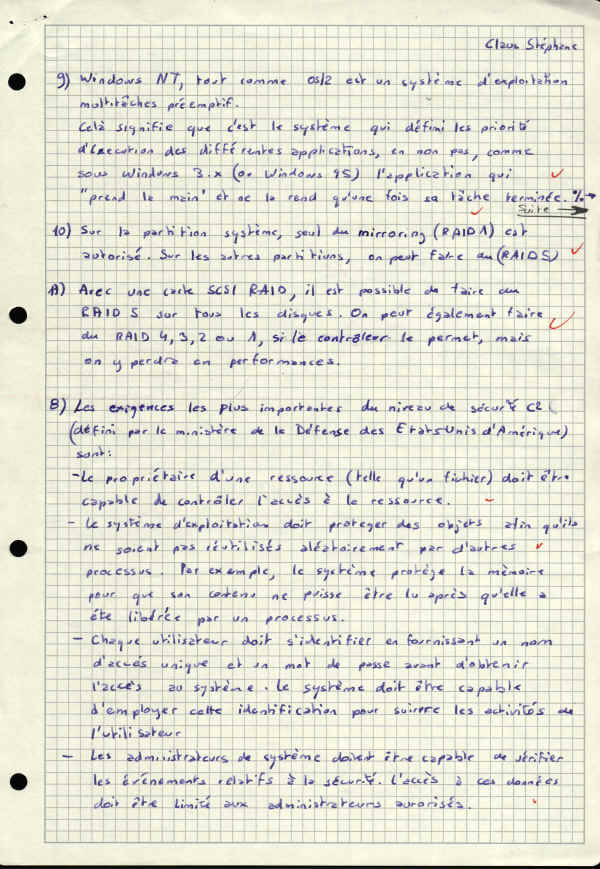 Claus Stéphane
9) Windows NT, tout comme OS/2 est un système d'exploitation
multitâches préemptif.
Celà signifie que c'est le système qui défini les priorité
d'éxecution des différentes applications, en non pas, comme
sous Windows 3.x (ou Windows 95) l'application qui
"prend la main" et ne la rend qu'une fois sa tâche terminée. %→
Suite →
10) Sur la partition système, seul du mirroring (RAID 1) est
autorisé. Sur les autres partitions, on peut faire du (RAID 5)
A) Avec une carte SCSI RAID, il est possible de faire du
RAID 5 sur tous les disques. On peut également faire
du RAID 4, 3, 2 ou 1, si le contrôleur le permet, mais
on y perdra en performances.
8) Les exigences les plus importantes du niveau de sécurité C2
(défini par le ministère de la Défense des Etats-Unis d'Amérique)
sont:
- Le propriétaire d'une ressource (telle qu'un fichier) doit être
capable de contrôler l'accès à la ressource.
- Le système d'exploitation doit proteger des objets afin qu'ils
ne soient pas réutilisés aléatoirement par d'autres
processus. Par exemple, le système protège la mémoire
pour que son contenu ne puisse être lu après qu'elle a
été libérée par un processus.
- Chaque utilisateur doit s'identifier en fournissant un nom
d'accés unique et un mot de passe avant d'obtenir
l'accès au système. Le système doit être capable
d'employer cette identification pour suivre les activités de
l'utilisateur
- Les administrateurs de système doivent être capable de vérifier
les événements relatifs à la sécurité. L'accès à ces données
doit être limité aux administrateurs autorisés.